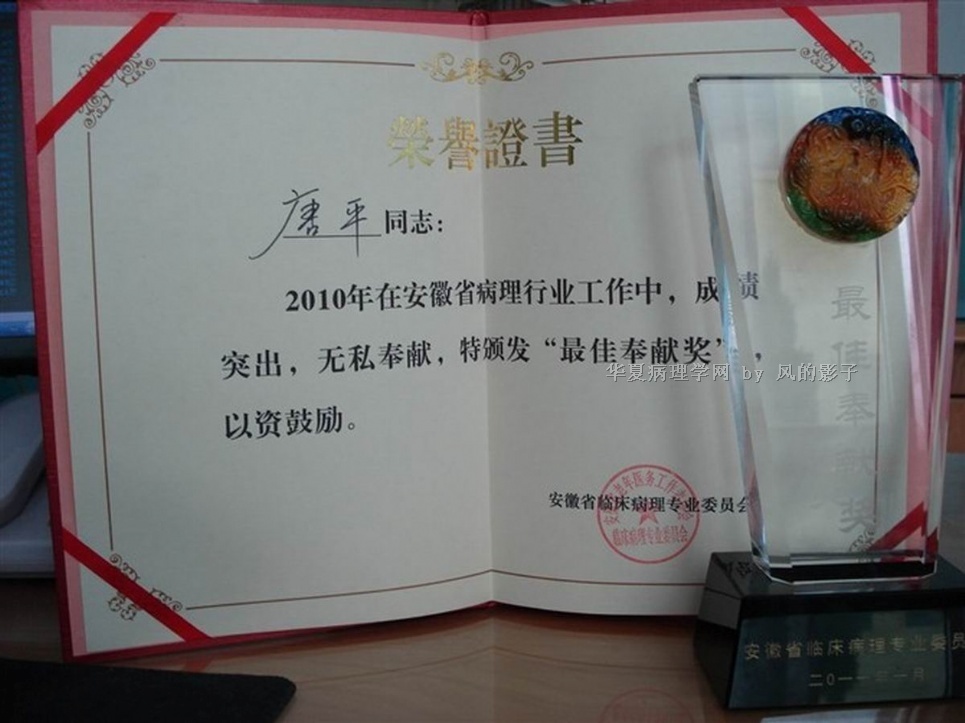 榮譽證書
唐平同志：
2010年在安徽省病理行业工作中，成绩
突出，无私奉献，特颁发“最佳奉献奖”，
以资鼓励。
安徽省临床病理专业委员会
临床病理专业委员会
华夏病理学网 by 风的影子
最佳奉献奖
安徽省临床病理专业委员
二〇一一年一月